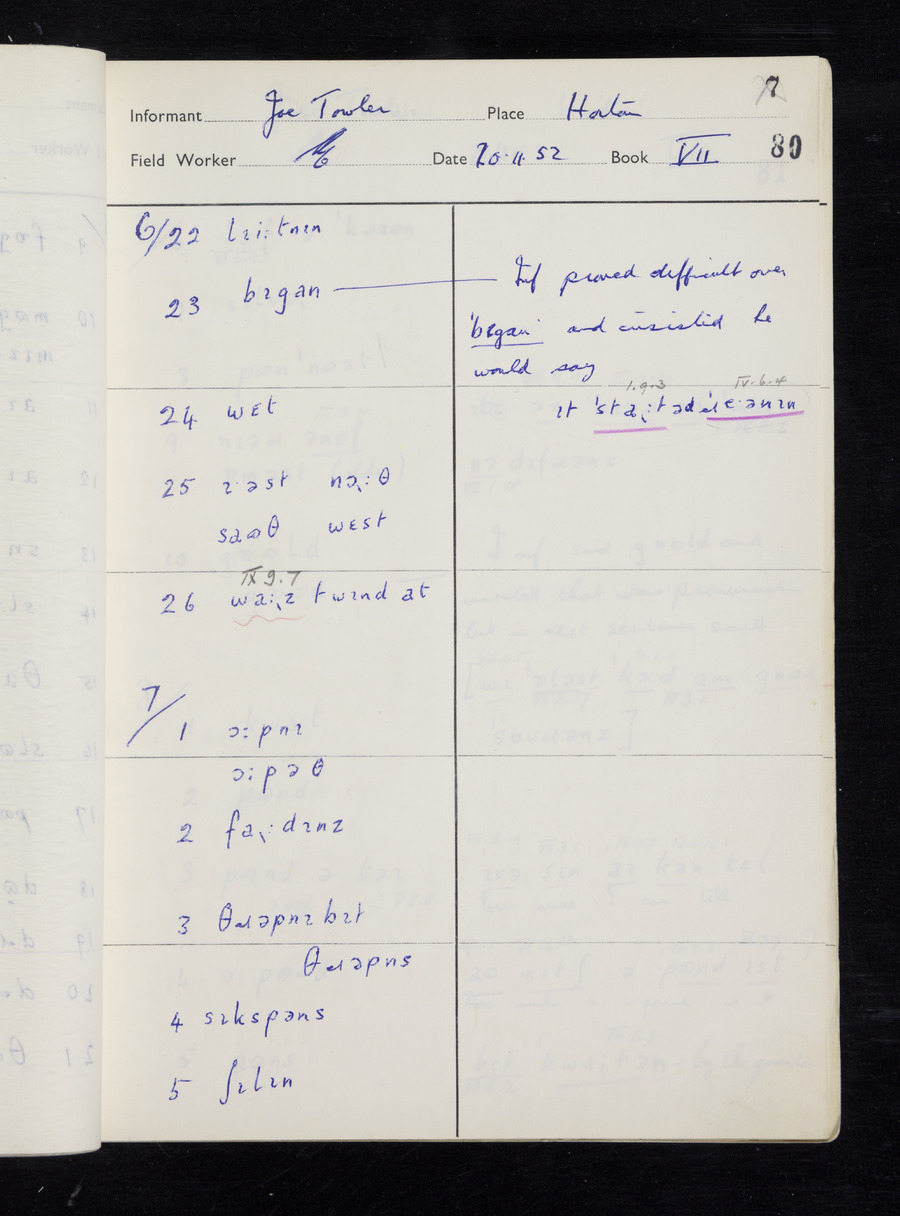 7
Informant Joe Towler Place Horton
Field Worker Date 20.11.52 Book VII 80
6/22 lɪi:tnɪn
23 bɪgan Inf proved difficult over
'bɪgan' and insisted he
would say
I.9.3 IV.6.4
24 wɛt ɪt 'sta˛:təd
25 ɪəst nɔ˛:θ
saʊθ wɛst
IX 9.7
26 wa:˛ɪ twɪnd at
7/1 ɔ:pnɪ
ɔ:pəθ
2 fa˛:dɪnz
3 θɹəpnɪbɪt
θɹəpns
4 sɪkspəns
5 ʃɪlɪn